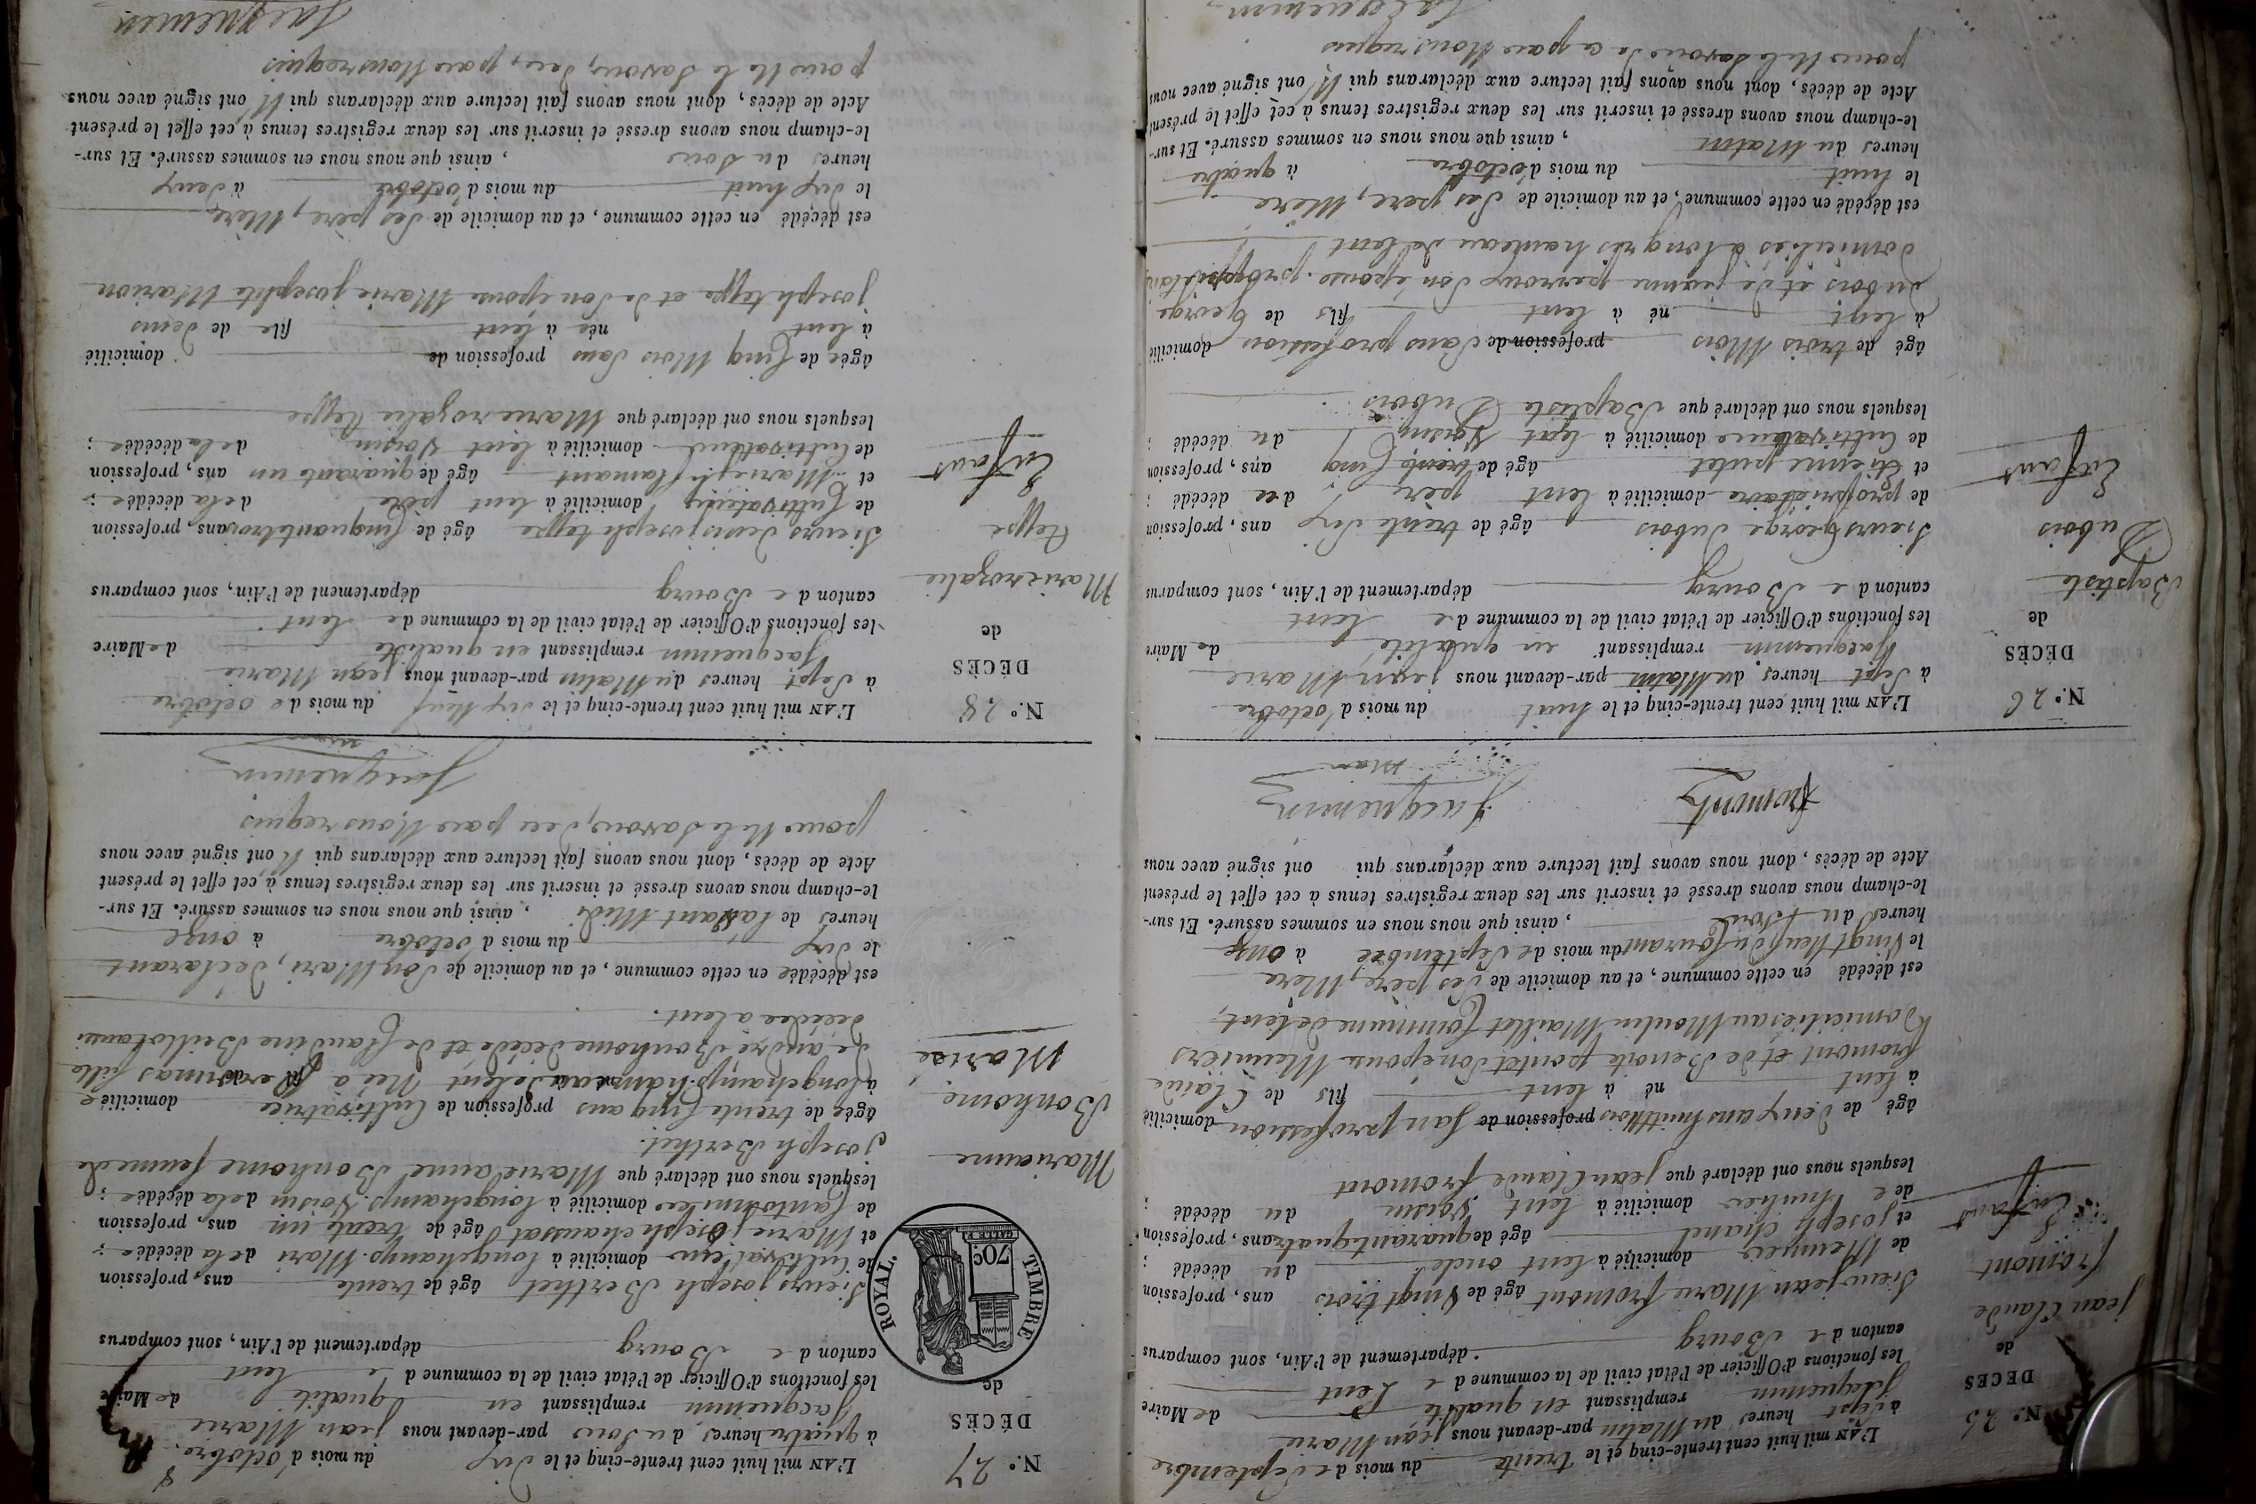 N.º 25
DÉCÈS
de
jean Claude
fromont
Enfant
L'AN mil huit cent trente-cinq et le trente du mois de Septembre
à Sept heures du Matin par-devant nous jean Marie
Jacquemin remplissant en qualité de Maire
les fonctions d'Officier de l'état civil de la commune de Lent
canton de Bourg département de l'Ain, sont comparus
Sieurs jean Marie fromont âgé de Vingt trois ans, profession
de Meunier domicilié à lent oncle du décédé ;
et joseph Chanel âgé de quarante quatre ans, profession
de domicilié à lent Voisin du décédé ;
lesquels nous ont déclaré que jean Claude fromont
âgé de Deux ans huit Mois profession de San profession domicilié
à lent né à lent fils de Claude
fromont et de Benoite poutet Son épouse Meuniers
Domiciliés au Moulin Maillet Commune de lent,
est décédé en cette commune, et au domicile de Ses père, Mère
le Vingt Neuf du Courant du mois de Septembre à onze
heures du Soir , ainsi que nous nous en sommes assuré. Et sur-
le-champ nous avons dressé et inscrit sur les deux registres tenus à cet effet le présent
Acte de décès, dont nous avons fait lecture aux déclarans qui ont signé avec nous
fromont Jacquemin
maire
N.º 26
DÉCÈS
de
Baptiste
Dubois
Enfant
L'AN mil huit cent trente-cinq et le huit du mois d'octobre
à Sept heures du Matin par-devant nous jean Marie
Jacquemin remplissant en qualité de Maire
les fonctions d'Officier de l'état civil de la commune de lent
canton de Bourg département de l'Ain, sont comparus
Sieurs George Dubois âgé de trente Six ans, profession
de propriétaire domicilié à lent père du décédé ;
et Etienne putet âgé de trente Cinq ans, profession
de Cultivateur domicilié à lent Voisin du décédé ;
lesquels nous ont déclaré que Baptiste Dubois
âgé de trois Mois profession de Sans profession domicilié
à lent né à lent fils de George
Dubois et de jeanne perroux Son épouse propriétaires
domiciliés à longrès hameau de lent
est décédé en cette commune, et au domicile de Ses père, Mère
le huit du mois d'octobre à quatre
heures du Matin , ainsi que nous nous en sommes assuré. Et sur-
le-champ nous avons dressé et inscrit sur les deux registres tenus à cet effet le présent
Acte de décès, dont nous avons fait lecture aux déclarans qui N'ont signé avec nous
pour Ne le Savoir de ce par Nous requis
Jacquemin
N.º 27
DÉCÈS
de
TIMBRE ROYAL.
70c
Marianne
Bonhome
Marié
L'AN mil huit cent trente-cinq et le dix du mois d'octobre
à quatre heures du Soir par-devant nous jean Marie
Jacquemin remplissant en qualité de Maire
les fonctions d'Officier de l'état civil de la commune de lent
canton de Bourg département de l'Ain, sont comparus
Sieurs joseph Berthet âgé de trente ans, profession
de Cultivateur domicilié à longchamp Mari de la décédée ;
et Marie joseph chaussat âgé de trente un ans, profession
de Cantonnier domicilié à longchamp Voisin de la décédée ;
lesquels nous ont déclaré que Marie anne Bonhome femme de
Joseph Berthet.
âgée de trente Cinq ans profession de Cultivatrice domiciliée
à longchamp hameau de lent Née à Perdonnas fille
de andré Bonhome décédé et de Claudine Beillot aussi
décédée à lent.
est décédée en cette commune, et au domicile de Son Mari, déclarant
le dix du mois d'octobre à onze
heures de l'avant Midi , ainsi que nous nous en sommes assuré. Et sur-
le-champ nous avons dressé et inscrit sur les deux registres tenus à cet effet le présent
Acte de décès, dont nous avons fait lecture aux déclarans qui N'ont signé avec nous
pour Ne le Savoir, de ce par Nous requis
Jacquemin
maire
N.º 28
DÉCÈS
de
Marie rozalie
Teppe
Enfant
L'AN mil huit cent trente-cinq et le dix Neuf du mois de octobre
à Sept heures du Matin par-devant nous jean Marie
Jacquemin remplissant en qualité de Maire
les fonctions d'Officier de l'état civil de la commune de lent
canton de Bourg département de l'Ain, sont comparus
Sieurs Denis joseph teppe âgé de Cinquante trois ans, profession
de Cultivateur domicilié à lent père de la décédée ;
et Marie jph flamant âgé de quarante un ans, profession
de Cultivateur domicilié à lent Voisin de la décédée ;
lesquels nous ont déclaré que Marie rozalie Teppe
âgée de Cinq Mois Sans profession de domicilié
à lent née à lent file de denis
joseph teppe et de Son épouse Marie josephte Marion
est décédée en cette commune, et au domicile de Ses père, Mère
le dix huit du mois d'octobre à deux
heures du Soir , ainsi que nous nous en sommes assuré. Et sur-
le-champ nous avons dressé et inscrit sur les deux registres tenus à cet effet le présent
Acte de décès, dont nous avons fait lecture aux déclarans qui N'ont signé avec nous
pour Ne le Savoir, de ce, par Nous requis
Jacquemin